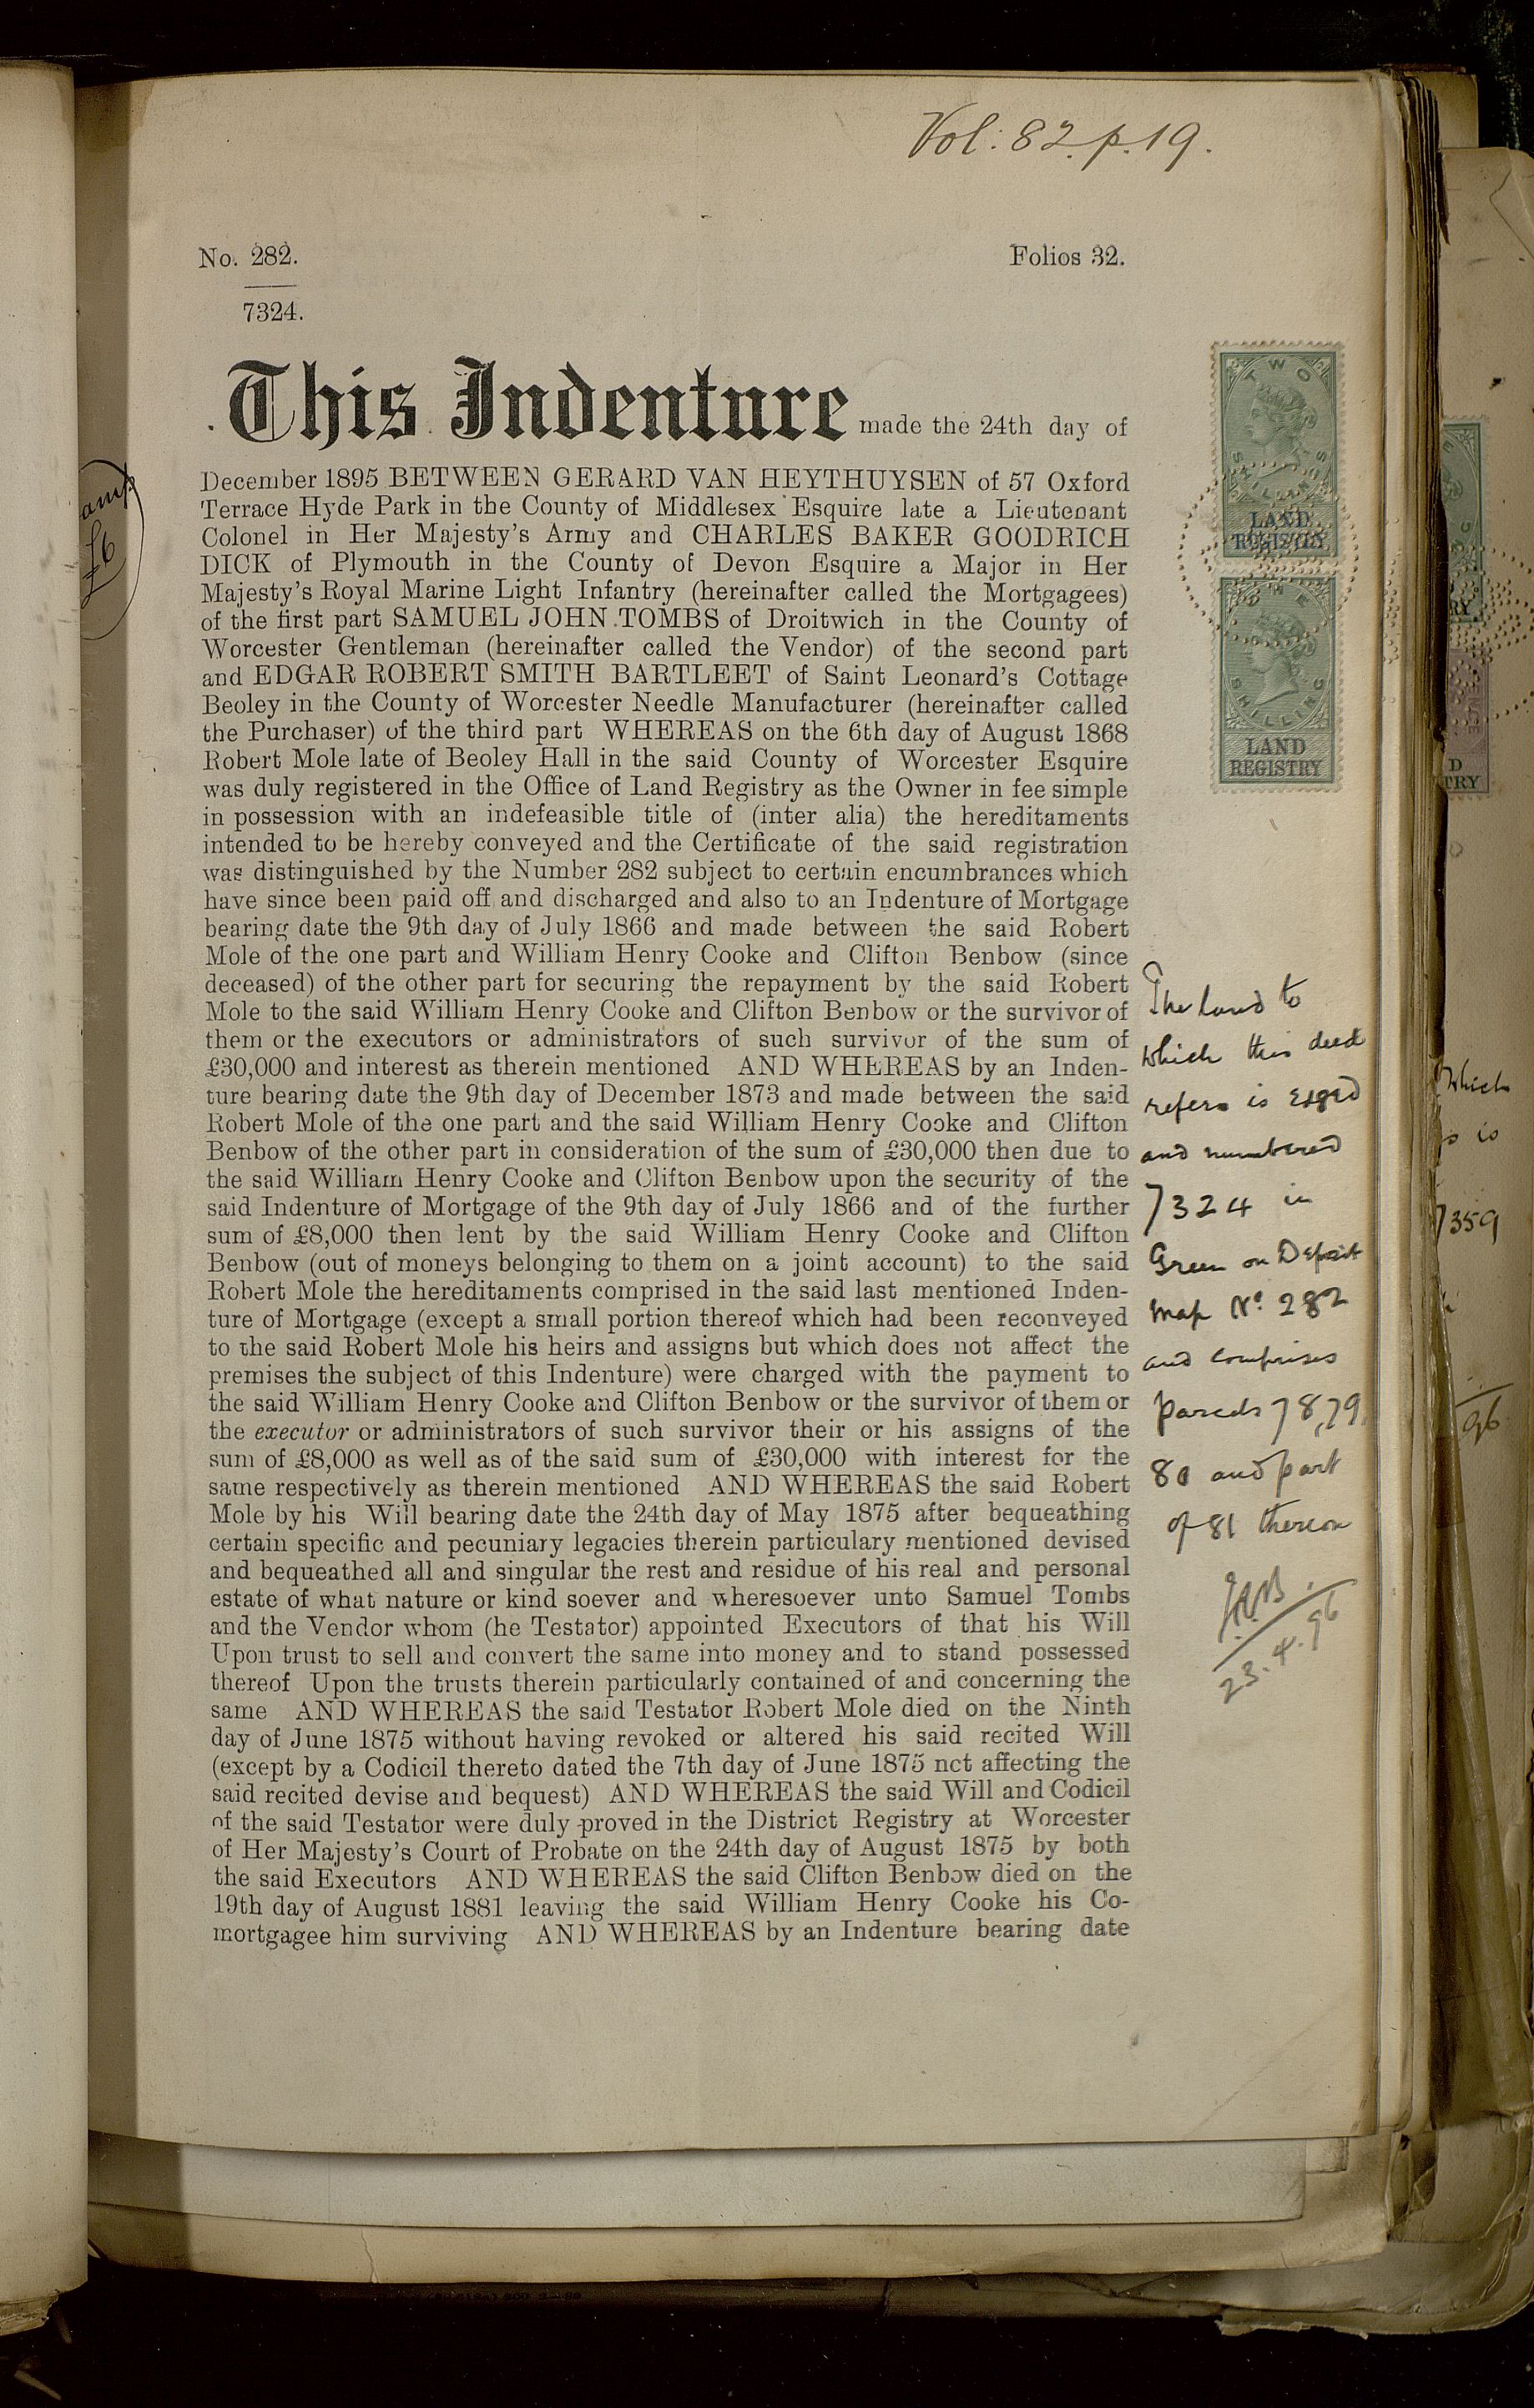 Vol: 82. p. 19.
No. 282.
Folios 32.
7324.
This Indenture made the 24th day of
December 1895 BETWEEN GERARD VAN HEYTHUYSEN of 57 Oxford
Terrace Hyde Park in the County of Middlesex Esquire late a Lieutenant
Colonel in Her Majesty's Army and CHARLES BAKER GOODRICH
DICK of Plymouth in the County of Devon Esquire a Major in Her
Majesty's Royal Marine Light Infantry (hereinafter called the Mortgagees)
of the first part SAMUEL JOHN TOMBS of Droitwich in the County of
Worcester Gentleman (hereinafter called the Vendor) of the second part
and EDGAR ROBERT SMITH BARTLEET of Saint Leonard's Cottage
Beoley in the County of Worcester Needle Manufacturer (hereinafter called
the Purchaser) of the third part WHEREAS on the 6th day of August 1868
Robert Mole late of Beoley Hall in the said County of Worcester Esquire
was duly registered in the Office of Land Registry as the Owner in fee simple
in possession with an indefeasible title of (inter alia) the hereditaments
intended to be hereby conveyed and the Certificate of the said registration
was distinguished by the Number 282 subject to certain encumbrances which
have since been paid off and discharged and also to an Indenture of Mortgage
bearing date the 9th day of July 1866 and made between the said Robert
Mole of the one part and William Henry Cooke and Clifton Benbow (since
deceased) of the other part for securing the repayment by the said Robert
Mole to the said William Henry Cooke and Clifton Benbow or the survivor of
them or the executors or administrators of such survivor of the sum of
£30,000 and interest as therein mentioned AND WHEREAS by an Inden-
ture bearing date the 9th day of December 1873 and made between the said
Robert Mole of the one part and the said William Henry Cooke and Clifton
Benbow of the other part in consideration of the sum of £30,000 then due to
the said William Henry Cooke and Clifton Benbow upon the security of the
said Indenture of Mortgage of the 9th day of July 1866 and of the further
sum of £8,000 then lent by the said William Henry Cooke and Clifton
Benbow (out of moneys belonging to them on a joint account) to the said
Robert Mole the hereditaments comprised in the said last mentioned Inden-
ture of Mortgage (except a small portion thereof which had been reconveyed
to the said Robert Mole his heirs and assigns but which does not affect the
premises the subject of this Indenture) were charged with the payment to
the said William Henry Cooke and Clifton Benbow or the survivor of them or
the executor or administrators of such survivor their or his assigns of the
sum of £8,000 as well as of the said sum of £30,000 with interest for the
same respectively as therein mentioned AND WHEREAS the said Robert
Mole by his Will bearing date the 24th day of May 1875 after bequeathing
certain specific and pecuniary legacies therein particulary mentioned devised
and bequeathed all and singular the rest and residue of his real and personal
estate of what nature or kind soever and wheresoever unto Samuel Tombs
and the Vendor whom (he Testator) appointed Executors of that his Will
Upon trust to sell and convert the same into money and to stand possessed
thereof Upon the trusts therein particularly contained of and concerning the
same AND WHEREAS the said Testator Robert Mole died on the Ninth
day of June 1875 without having revoked or altered his said recited Will
(except by a Codicil thereto dated the 7th day of June 1875 nct affecting the
said recited devise and bequest) AND WHEREAS the said Will and Codicil
of the said Testator were duly proved in the District Registry at Worcester
of Her Majesty's Court of Probate on the 24th day of August 1875 by both
the said Executors AND WHEREAS the said Clifton Benbow died on the
19th day of August 1881 leaving the said William Henry Cooke his Co-
mortgagee him surviving AND WHEREAS by an Indenture bearing date
TWO
SHILLINGS
LAND
REGISTRY
ONE
SHILLING
LAND
REGISTRY
The land to
which this deed
refers is edged
and numbered
7324 in
Green on Deposit
map No. 282
and comprises
parcels 78, 79,
80 and part
of 81 thereon
23.4.96
amp
£6
which
is
7359
96
RY
D
TRY